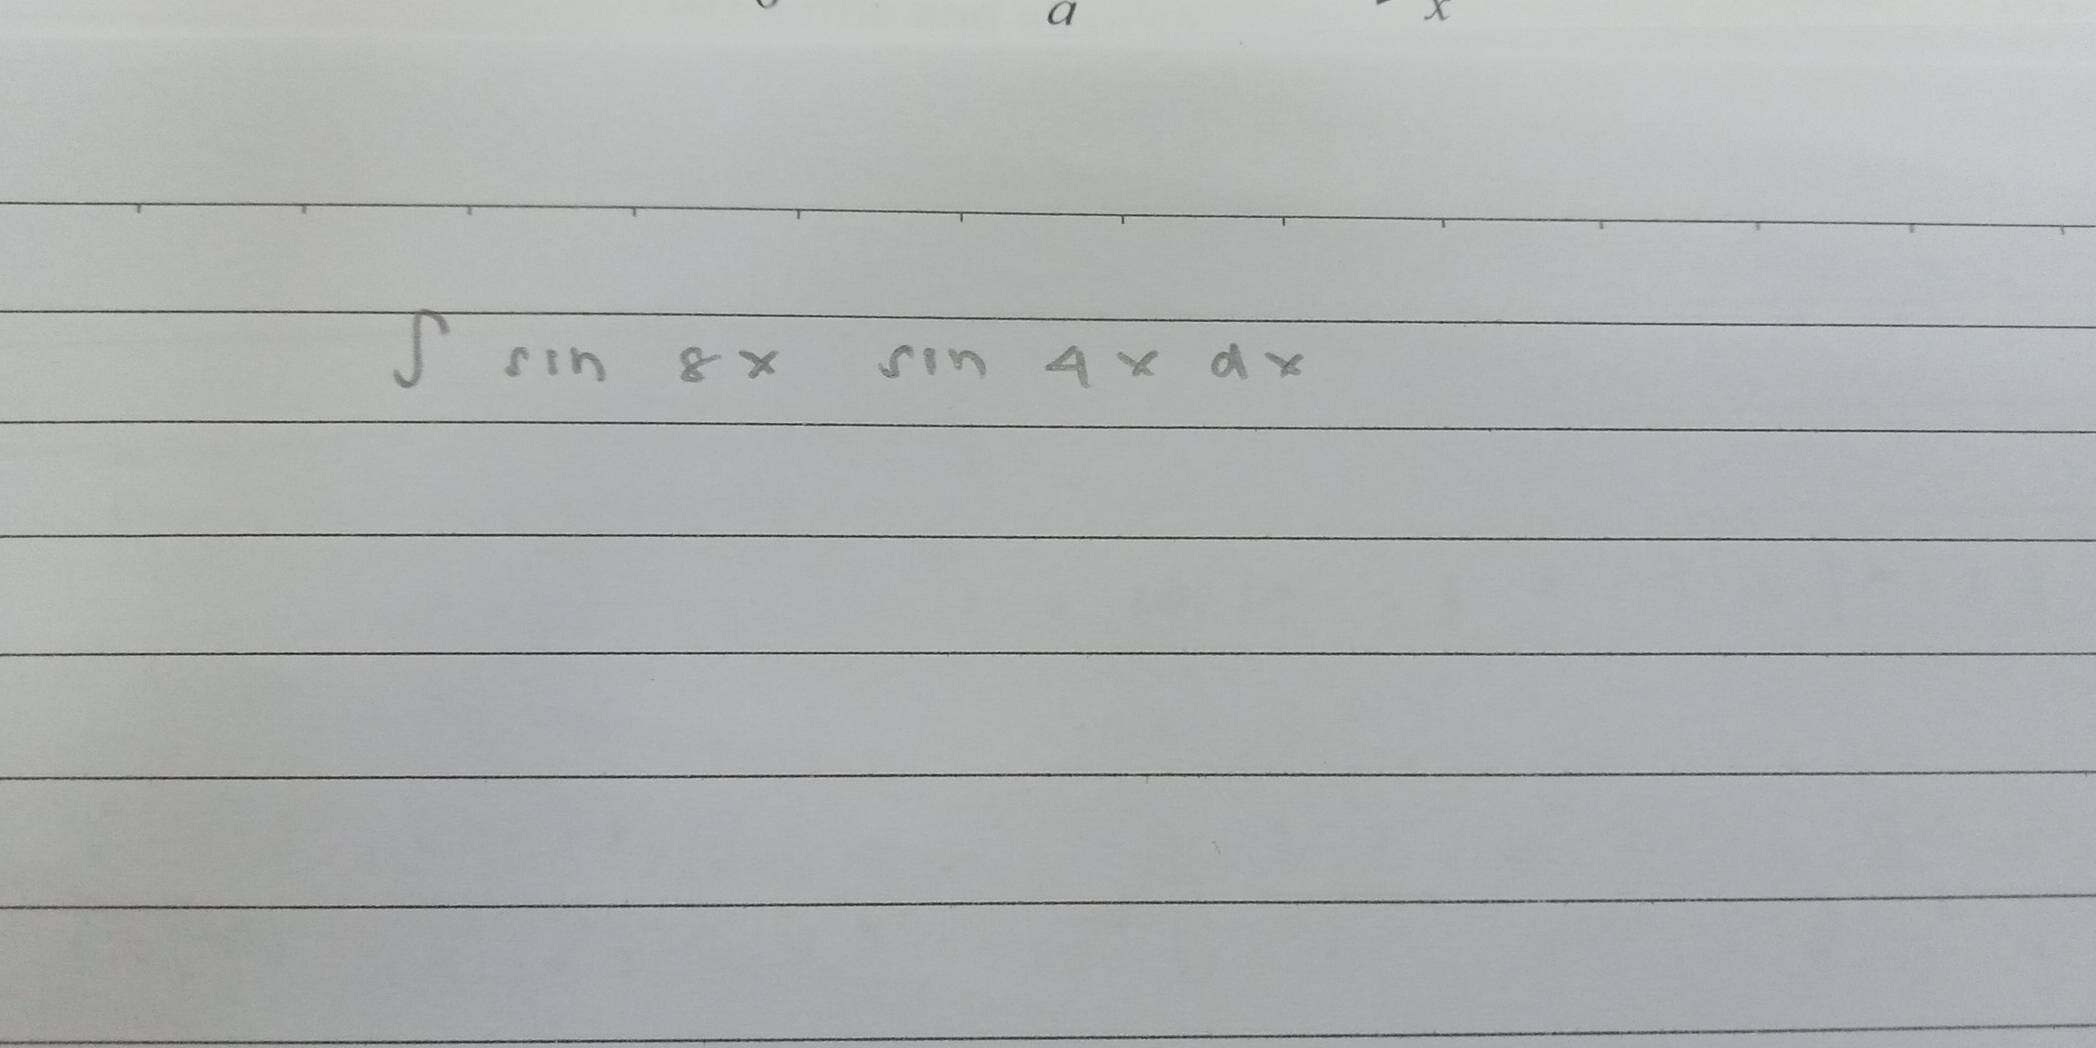 a x
∫ sin 8x sin 4x dx